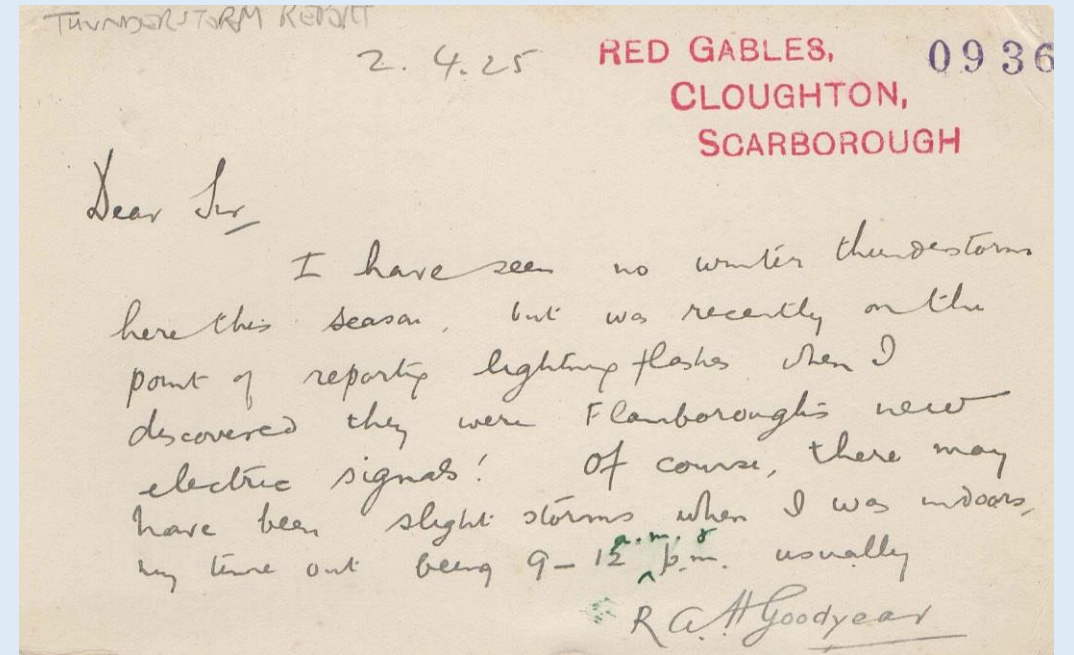 THUNDERSTORM REPORT
2. 4. 25
RED GABLES,
CLOUGHTON,
SCARBOROUGH
0936
Dear Sir,
I have seen no winter thunderstorms
here this season, but was recently on the
point of reporting lightning flashes when I
discovered they were Flamborough's new
electric signals! Of course, there may
have been slight storms when I was indoors,
my time out being 9-12 a.m. & p.m. usually
R A. H Goodyear